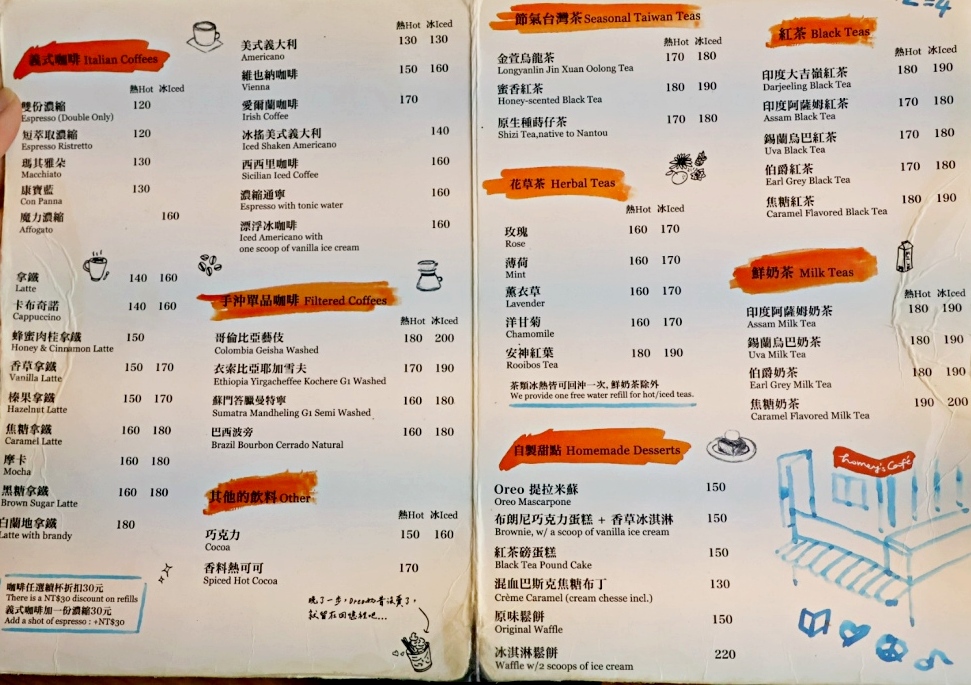 義式咖啡 Italian Coffees
熱Hot 冰Iced
雙份濃縮 120
Espresso (Double Only)
短萃取濃縮 120
Espresso Ristretto
瑪其雅朵 130
Macchiato
康寶藍 130
Con Panna
魔力濃縮 160
Affogato
拿鐵 140 160
Latte
卡布奇諾 140 160
Cappuccino
蜂蜜肉桂拿鐵 150
Honey & Cinnamon Latte
香草拿鐵 150 170
Vanilla Latte
榛果拿鐵 150 170
Hazelnut Latte
焦糖拿鐵 160 180
Caramel Latte
摩卡 160 180
Mocha
黑糖拿鐵 160 180
Brown Sugar Latte
白蘭地拿鐵 180
Latte with brandy
咖啡任選續杯折扣30元
There is a NT$30 discount on refills
義式咖啡加一份濃縮30元
Add a shot of espresso : +NT$30
熱Hot 冰Iced
美式義大利 130 130
Americano
維也納咖啡 150 160
Vienna
愛爾蘭咖啡 170
Irish Coffee
冰搖美式義大利 140
Iced Shaken Americano
西西里咖啡 160
Sicilian Iced Coffee
濃縮通寧 160
Espresso with tonic water
漂浮冰咖啡 160
Iced Americano with
one scoop of vanilla ice cream
手沖單品咖啡 Filtered Coffees
熱Hot 冰Iced
哥倫比亞藝伎 180 200
Colombia Geisha Washed
衣索比亞耶加雪夫 170 190
Ethiopia Yirgacheffee Kochere G1 Washed
蘇門答臘曼特寧 160 180
Sumatra Mandheling G1 Semi Washed
巴西波旁 160 180
Brazil Bourbon Cerrado Natural
其他的飲料 Other
熱Hot 冰Iced
巧克力 150 160
Cocoa
香料熱可可 170
Spiced Hot Cocoa
晚了一步，Oreo奶昔沒賣了，
就留在回憶裡吧...
節氣台灣茶 Seasonal Taiwan Teas
熱Hot 冰Iced
金萱烏龍茶 170 180
Longyanlin Jin Xuan Oolong Tea
蜜香紅茶 180 190
Honey-scented Black Tea
原生種蒔仔茶 170 180
Shizi Tea,native to Nantou
花草茶 Herbal Teas
熱Hot 冰Iced
玫瑰 160 170
Rose
薄荷 160 170
Mint
薰衣草 160 170
Lavender
洋甘菊 160 170
Chamomile
安神紅葉 180 190
Rooibos Tea
茶類冰熱皆可回沖一次, 鮮奶茶除外
We provide one free water refill for hot/iced teas.
自製甜點 Homemade Desserts
Oreo 提拉米蘇 150
Oreo Mascarpone
布朗尼巧克力蛋糕 + 香草冰淇淋 150
Brownie, w/ a scoop of vanilla ice cream
紅茶磅蛋糕 150
Black Tea Pound Cake
混血巴斯克焦糖布丁 130
Crème Caramel (cream chesse incl.)
原味鬆餅 150
Original Waffle
冰淇淋鬆餅 220
Waffle w/2 scoops of ice cream
紅茶 Black Teas
熱Hot 冰Iced
印度大吉嶺紅茶 180 190
Darjeeling Black Tea
印度阿薩姆紅茶 170 180
Assam Black Tea
錫蘭烏巴紅茶 170 180
Uva Black Tea
伯爵紅茶 170 180
Earl Grey Black Tea
焦糖紅茶 180 190
Caramel Flavored Black Tea
鮮奶茶 Milk Teas
熱Hot 冰Iced
印度阿薩姆奶茶 180 190
Assam Milk Tea
錫蘭烏巴奶茶 180 190
Uva Milk Tea
伯爵奶茶 180 190
Earl Grey Milk Tea
焦糖奶茶 190 200
Caramel Flavored Milk Tea
homey's Café